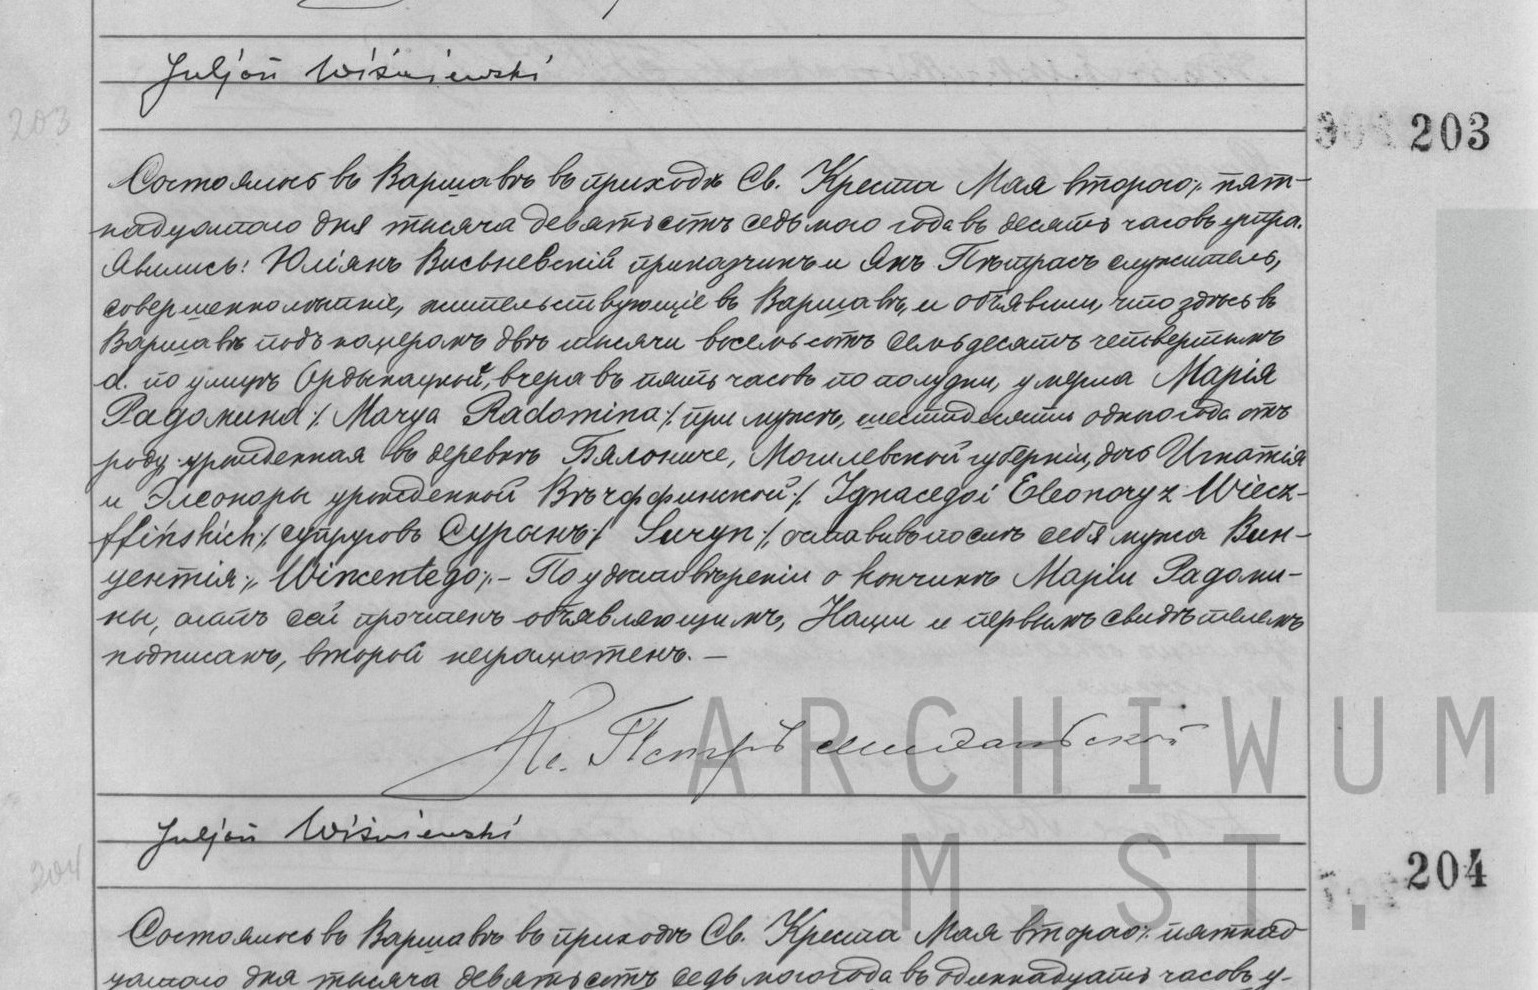 Juljan Wiśniewski
203
203
Состоялось въ Варшавѣ въ приходѣ Св. Креста Мая втораго /: пят-
надцатаго дня тысяча девятьсотъ седьмаго года въ десять часовъ утра.
Явились: Юліянъ Висьневскій приказчикъ и Янъ Пѣтрасъ служитель,
совершеннолѣтніе, жительствующіе въ Варшавѣ, и объявили, что здѣсь въ
Варшавѣ подъ номеромъ двѣ тысячи восемьсотъ семьдесятъ четвертымъ
d. по улицѣ Ордынацкой, вчера въ пять часовъ по полудни, умерла Марія
Радомина /: Marya Radomina :/ при мужѣ, шестидесяти одного года отъ
роду урожденная въ деревнѣ Бялониче, Могилевской губерніи, дочь Игнатія
и Элеоноры урожденной Вѣчффинской /: Ignacego i Eleonory z Wiecz-
ffińskich :/ супруговъ Сурынъ /: Suryn :/, оставивъ послѣ себя мужа Вин-
центія /: Wincentego :/ - По удостовѣреніи о кончинѣ Маріи Радоми-
ны, актъ сей прочтенъ объявляющимъ, Нами и первымъ свидѣтелемъ
подписанъ, второй неграмотенъ. —
Кс. Петръ
ARCHIWUM
Juljan Wiśniewski
M.ST.
204
204
Состоялось въ Варшавѣ въ приходѣ Св. Креста Мая втораго /: пятнад
цатаго дня тысяча девятьсотъ седьмого года въ одиннадцать часовъ у-